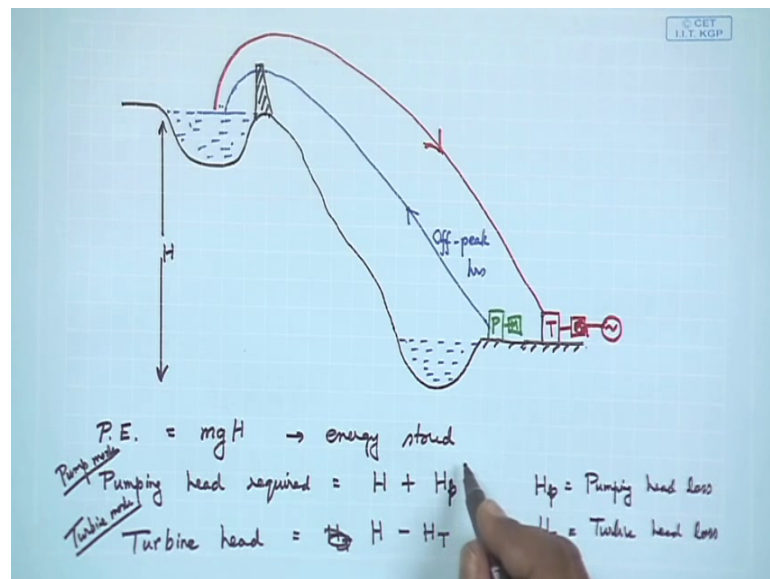 © CET
I.I.T. KGP
H
Off-peak
hrs
P
M
T
P.E. = mgH → energy stored
Pump mode
Pumping head required = H + Hp
Hp = Pumping head loss
Turbine mode
Turbine head = H - HT
= Turbine head loss